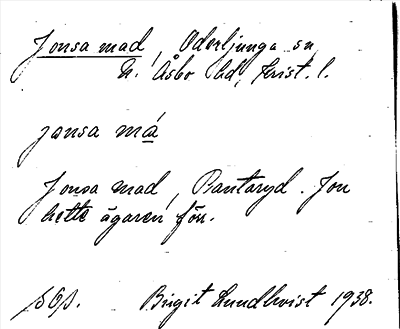 Jonsa mad, Oderljunga sn,
N. Åsbo hd, Krist. l.
jonsa má
Jonsa mad, Bantaryd. Jon
hette ägaren förr.
Birgit Lundkvist 1938.